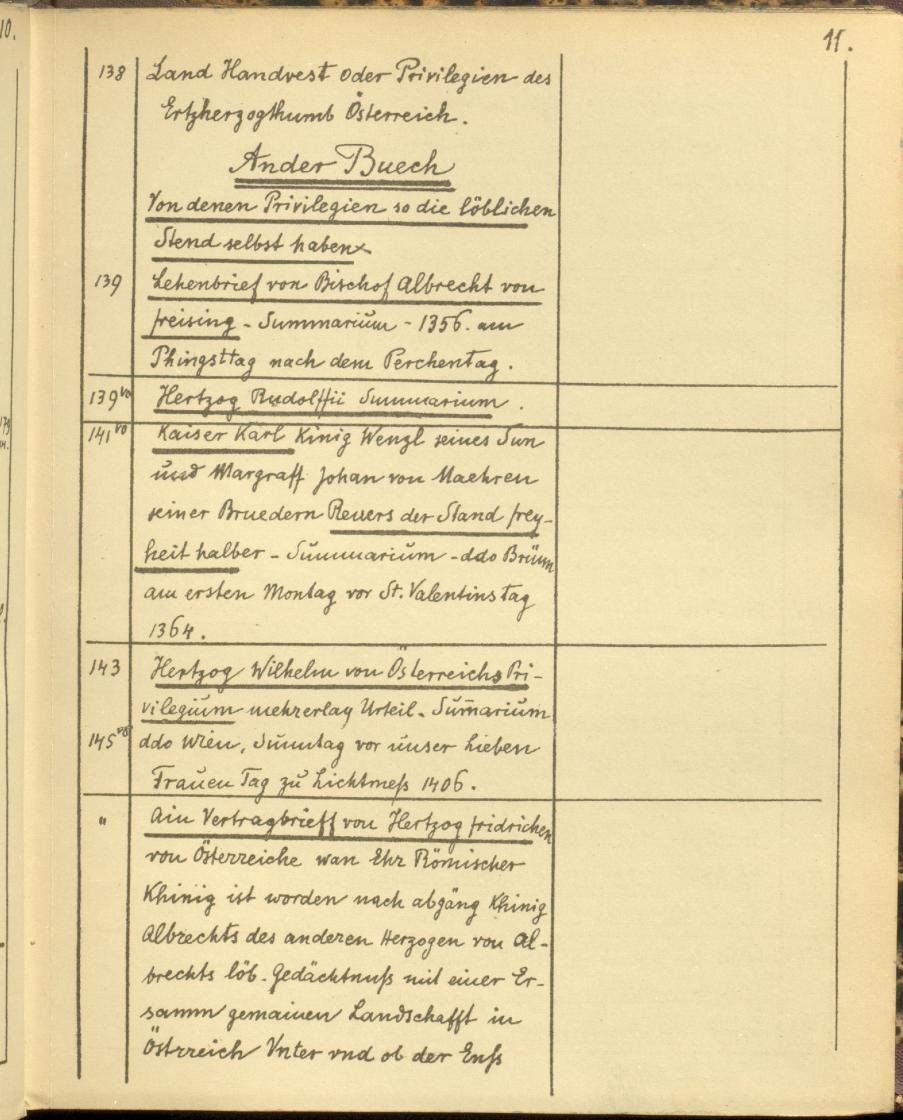 10.
11.
138 Land Handvest oder Privilegien des
Ertzherzogthumb Österreich.
Ander Buech
Von denen Privilegien so die löblichen
Stend selbst haben
139 Lehenbrief von Bischof Albrecht von
freising - Summarium - 1356. am
Phingsttag nach dem Perchentag.
139vo Hertzog Rudolffii Summarium.
141vo Kaiser Karl Kinig Wenzl seines Sun
und Margraff Johan von Maehren
seiner Bruedern Revers der Stand frey-
heit halber - Summarium - ddo Brünn
am ersten Montag vor St. Valentinstag
1364.
143 Hertzog Wilhelm von Österreichs Pri-
vilegium mehrerlay Urteil. Sum̄arium
145vo ddo Wien, Sunntag vor unser Lieben
Frauen Tag zu Lichtmeß 1406.
" Ain Vertragbrieff von Hertzog fridrichen
von Österreiche wan Ehr Römischer
Khinig ist worden nach abgang Khinig
Albrechts des anderen Herzogen von Al-
brechts löb. Gedächtnuß mit einer Er-
samm gemainen Landschafft in
Östrreich Vnter vnd ob der Enß